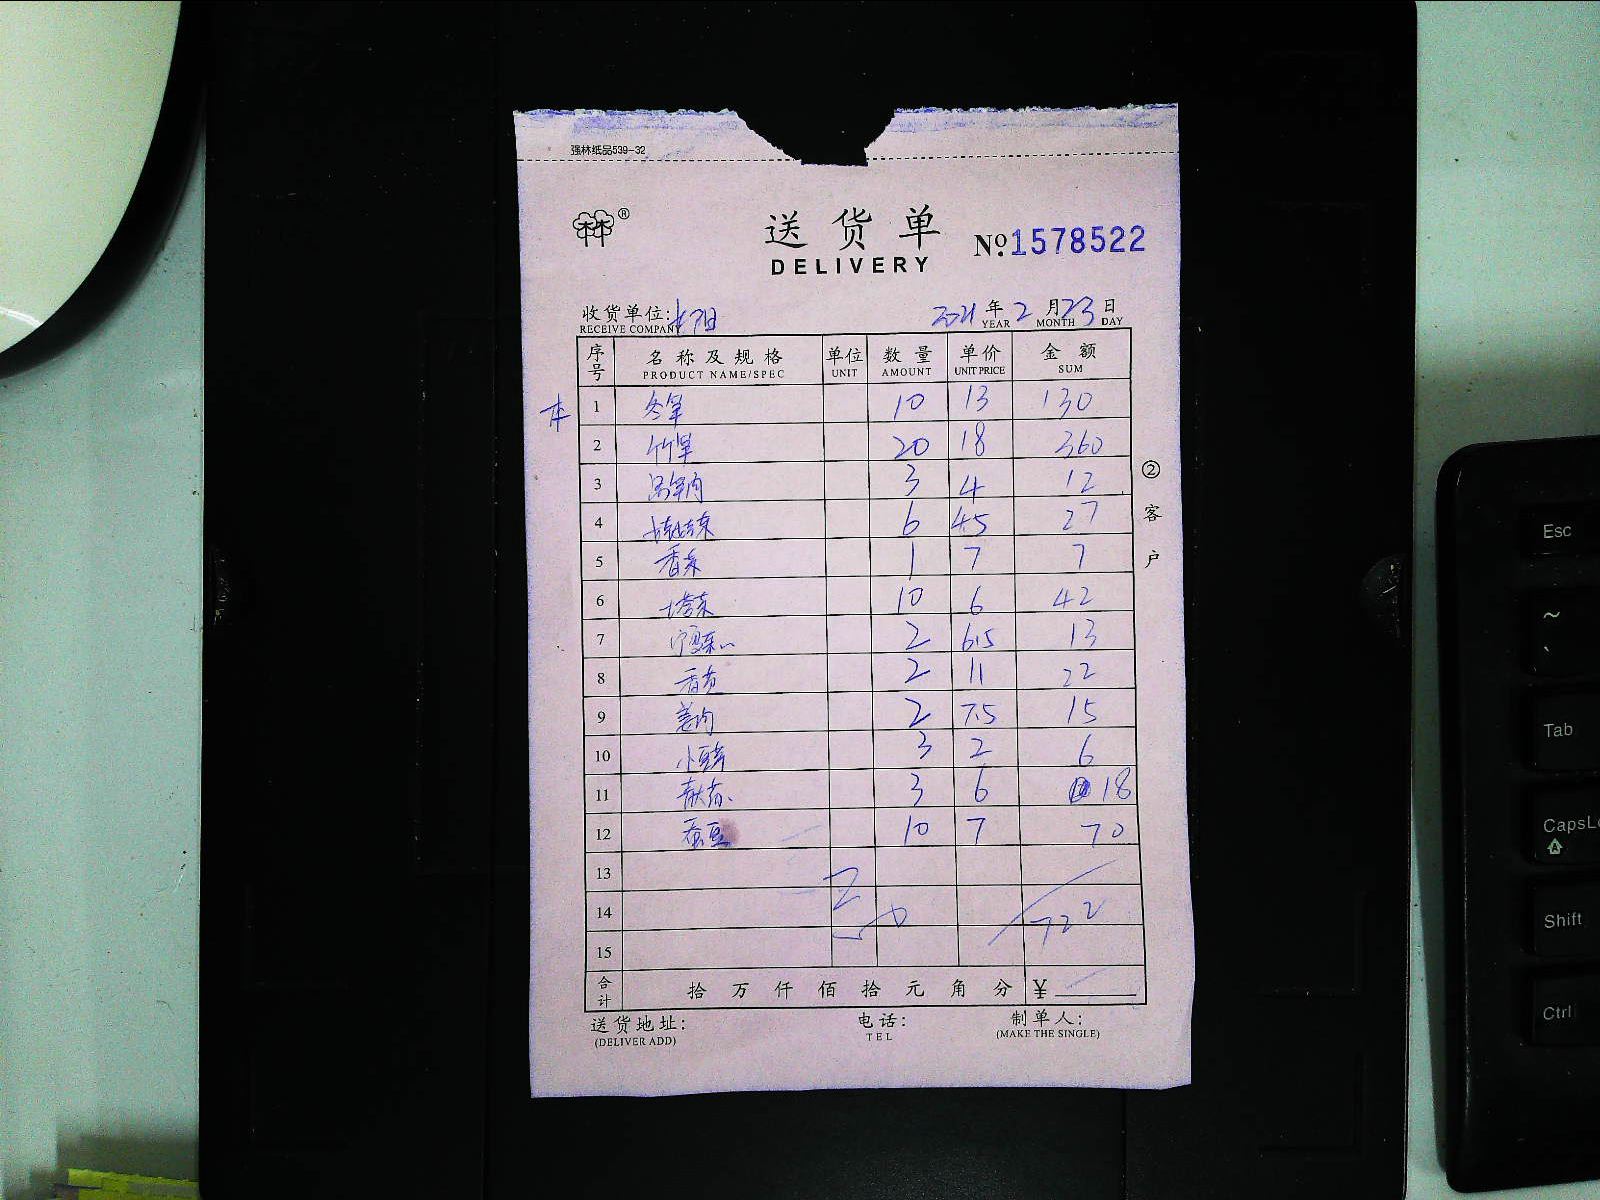 强林纸品539-32
林林®
送货单
DELIVERY
No.1578522
收货单位: 2021年2月23日
RECEIVE COMPANY YEAR MONTH DAY
序号 名称及规格 单位 数量 单价 金额
PRODUCT NAME/SPEC UNIT AMOUNT UNIT PRICE SUM
1 冬笋 10 13 130
2 竹笋 20 18 360
3 3 4 12
4 6 4.5 27
5 香菜 1 7 7
6 塔菜 10 6 42
7 2 6.5 13
8 2 11 22
9 姜肉 2 7.5 15
10 小豆芽 3 2 6
11 3 6 18
12 蚕豆 10 7 70
13
14 722
15
合计 拾万仟佰拾元角分 ¥
送货地址: 电话: 制单人:
(DELIVER ADD) TEL (MAKE THE SINGLE)
②客户
Esc
~
Tab
CapsLo
Shift
Ctrl